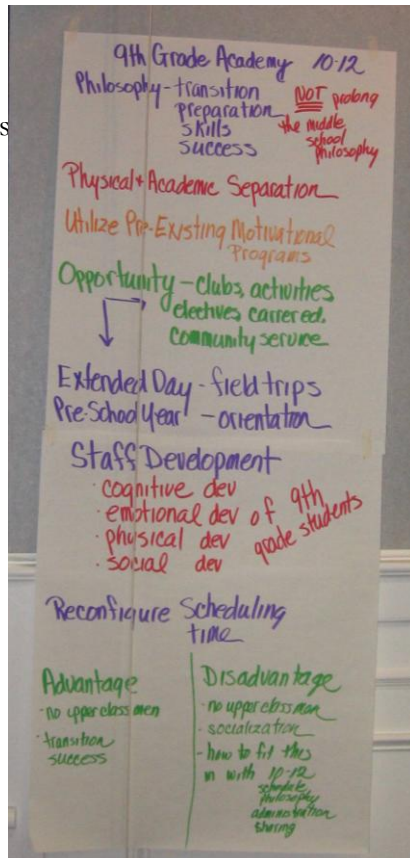 s
9th Grade Academy 10-12
Philosophy - transition
preparation
skills
success
NOT prolong
the middle
school
philosophy
Physical + Academic Separation
Utilize Pre-Existing Motivational
Programs
Opportunity - clubs, activities
electives carrered.
community service
Extended Day - field trips
Pre-School Year - orientation
Staff Development
· cognitive dev
· emotional dev of 9th
· physical dev grade students
· social dev
Reconfigure Scheduling
time
Advantage
- no upper class men
- transition
success
Disadvantage
- no upper class men
- socialization
- how to fit this
in with 10-12
schedule
philosophy
administration
sharing